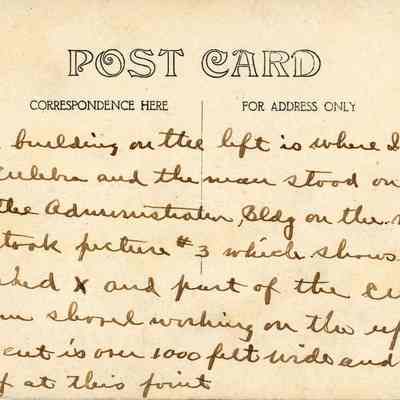 POST CARD
CORRESPONDENCE HERE FOR ADDRESS ONLY
building on the left is where I
Culebra and the man stood on
the Administration, Bldg on the
took picture #3 which shows
ked X and part of the Cu
m shovel working on the up
cut is over 1000 felt wide and
f at this point